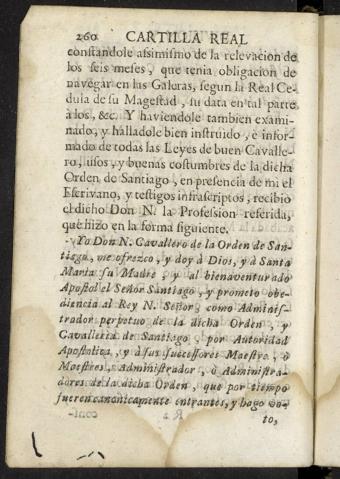 260 CARTILLA REAL
constandole assimismo de la relevacion de
los seis meses, que tenia obligacion de
navegar en las Galeras, segun la Real Ce-
dula de su Magestad, su data en tal parte
à los, &c. Y haviendole tambien exami-
nado, y halladole bien instruido, è infor-
mado de todas las Leyes de buen Cavalle-
ro, usos, y buenas costumbres de la dicha
Orden de Santiago, en presencia de mi el
Escrivano, y testigos infrascriptos, recibio
el dicho Don N. la Profession referida,
que hizo en la forma siguiente.
Yo Don N. Cavallero de la Orden de San-
tiago, me ofrezco, y doy à Dios, y à Santa
Maria su Madre, y al bienaventurado
Apostol el Señor Santiago, y prometo obe-
diencia al Rey N. Señor, como Adminis-
trador perpetuo de la dicha Orden, y
Cavalleria de Santiago, por Autoridad
Apostolica, y à sus successores Maestre, ò
Maestres, Administrador, ò Administra-
dores de la dicha Orden, que por tiempo
fueren canonicamente entrantes, y hago vo-
to,